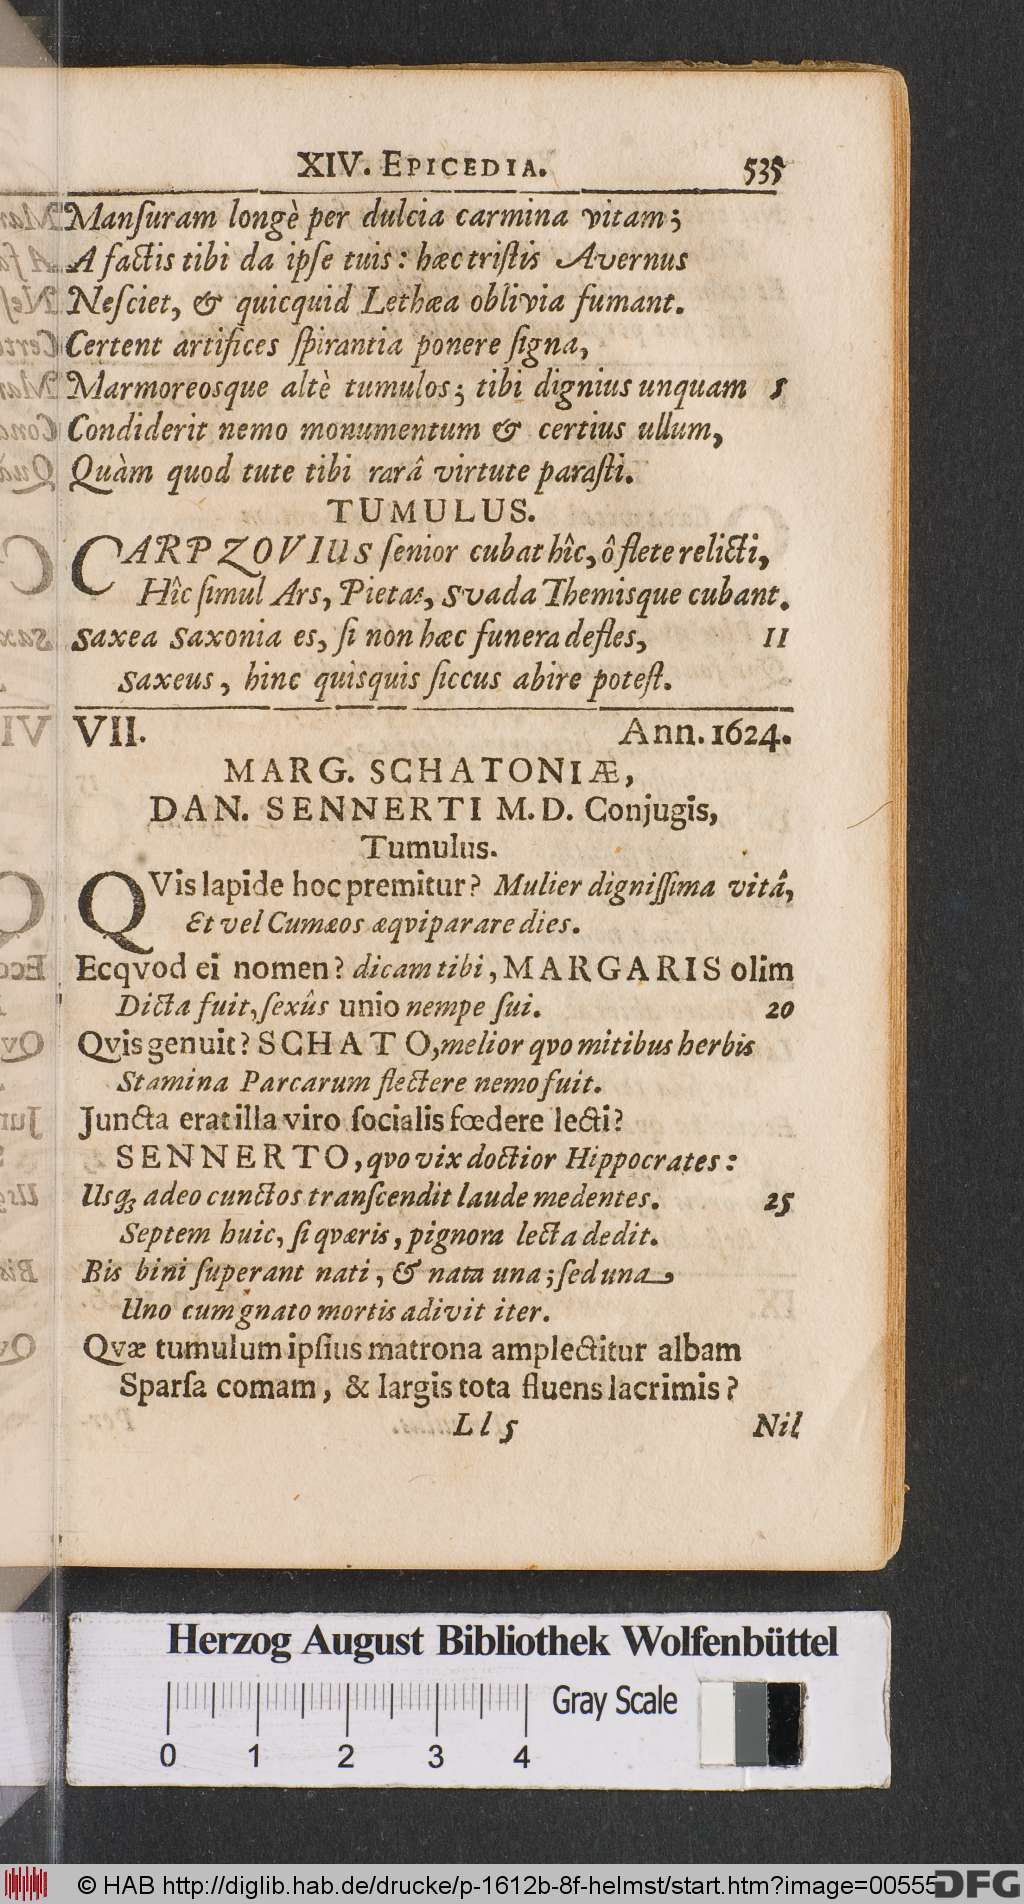 XIV. EPICEDIA. 535
Manſuram longè per dulcia carmina vitam;
A factis tibi da ipſe tuis: hæc triſtis Avernus
Neſciet, & quicquid Lethæa oblivia fumant.
Certent artifices ſpirantia ponere ſigna,
Marmoreosque altè tumulos; tibi dignius unquam 5
Condiderit nemo monumentum & certius ullum,
Quàm quod tute tibi rarâ virtute paraſti.
TUMULUS.
CARPZOVIUS ſenior cubat hîc, ô flete relicti,
Hîc ſimul Ars, Pietas, Svada Themisque cubant.
Saxea Saxonia es, ſi non hæc funera defles, 11
Saxeus, hinc quisquis ſiccus abire poteſt.
VII. Ann. 1624.
MARG. SCHATONIÆ,
DAN. SENNERTI M.D. Conjugis,
Tumulus.
QVis lapide hoc premitur? Mulier digniſſima vitâ,
Et vel Cumæos æqviparare dies.
Ecqvod ei nomen? dicam tibi, MARGARIS olim
Dicta fuit, ſexûs unio nempe ſui. 20
Qvis genuit? SCHATO, melior qvo mitibus herbis
Stamina Parcarum flectere nemo fuit.
Juncta erat illa viro ſocialis fœdere lecti?
SENNERTO, qvo vix doctior Hippocrates:
Usq; adeo cunctos tranſcendit laude medentes. 25
Septem huic, ſi qværis, pignora lecta dedit.
Bis bini ſuperant nati, & nata una; ſed una
Uno cum gnato mortis adivit iter.
Qvæ tumulum ipſius matrona amplectitur albam
Sparſa comam, & largis tota fluens lacrimis?
Ll 5 Nil
Herzog August Bibliothek Wolfenbüttel
Gray Scale
0 1 2 3 4
© HAB http://diglib.hab.de/drucke/p-1612b-8f-helmst/start.htm?image=00555
DFG